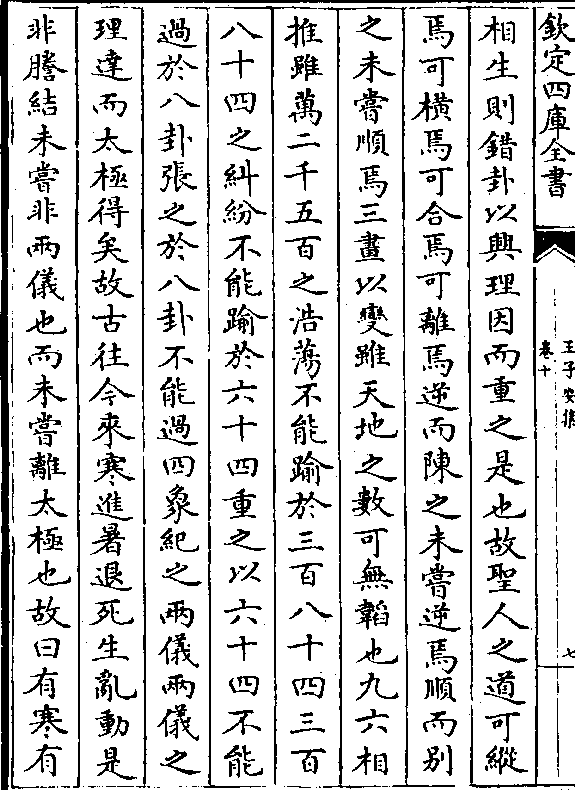 欽定四庫全書
王子安集
卷十
七
相生則錯卦以興理因而重之是也故聖人之道可縱
焉可橫焉可合焉可離焉逆而陳之未嘗逆焉順而別
之未嘗順焉三畫以變雖天地之數可無韜也九六相
推雖萬二千五百之浩蕩不能踰於三百八十四三百
八十四之糾紛不能踰於六十四重之以六十四不能
過於八卦張之於八卦不能過四象紀之兩儀兩儀之
理達而太極得矣故古往今來寒進暑退死生亂動是
非謄結未嘗非兩儀也而未嘗離太極也故曰有寒有